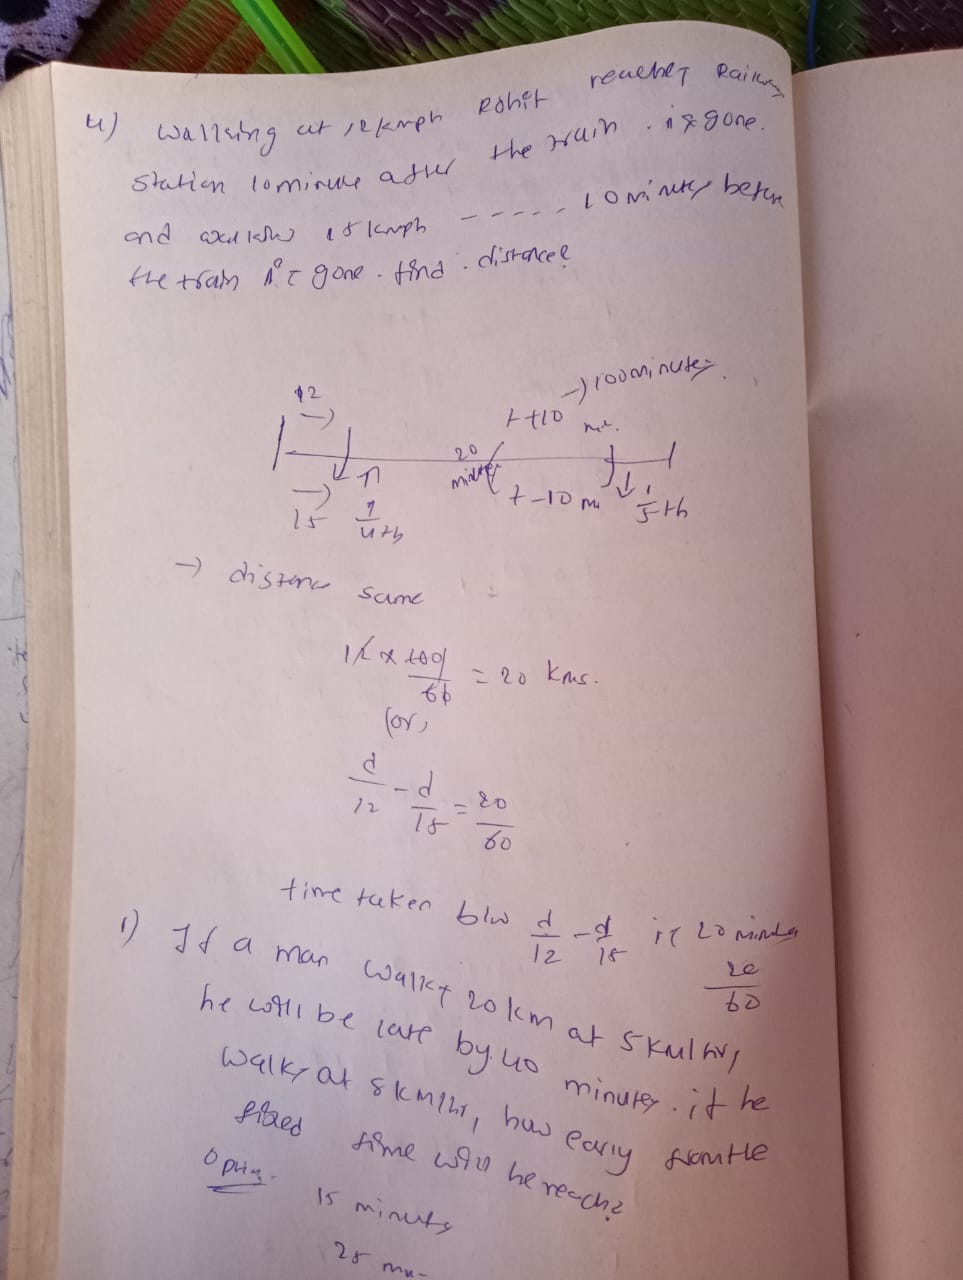 4) Walking at 12 kmph Rohit reaches Railway
station 10 minute after the train is gone.
and walks 15 kmph ----- 10 minutes before
the train is gone. find distance?
12
→ 100 minutes
t+10
20
minutes
t-10 m
1/5 th
15
1/4 th
→ distance same
12 x 100/60 = 20 kms.
(or)
d/12 - d/15 = 20/60
time taken b/w d/12 - d/15 is 20 minutes
20/60
1) If a man walks 20 km at 5 km/hr,
he will be late by 40 minutes. if he
walks at 8 km/hr, how early from the
fixed time will he reach?
Optns.
15 minuts
25 mn-